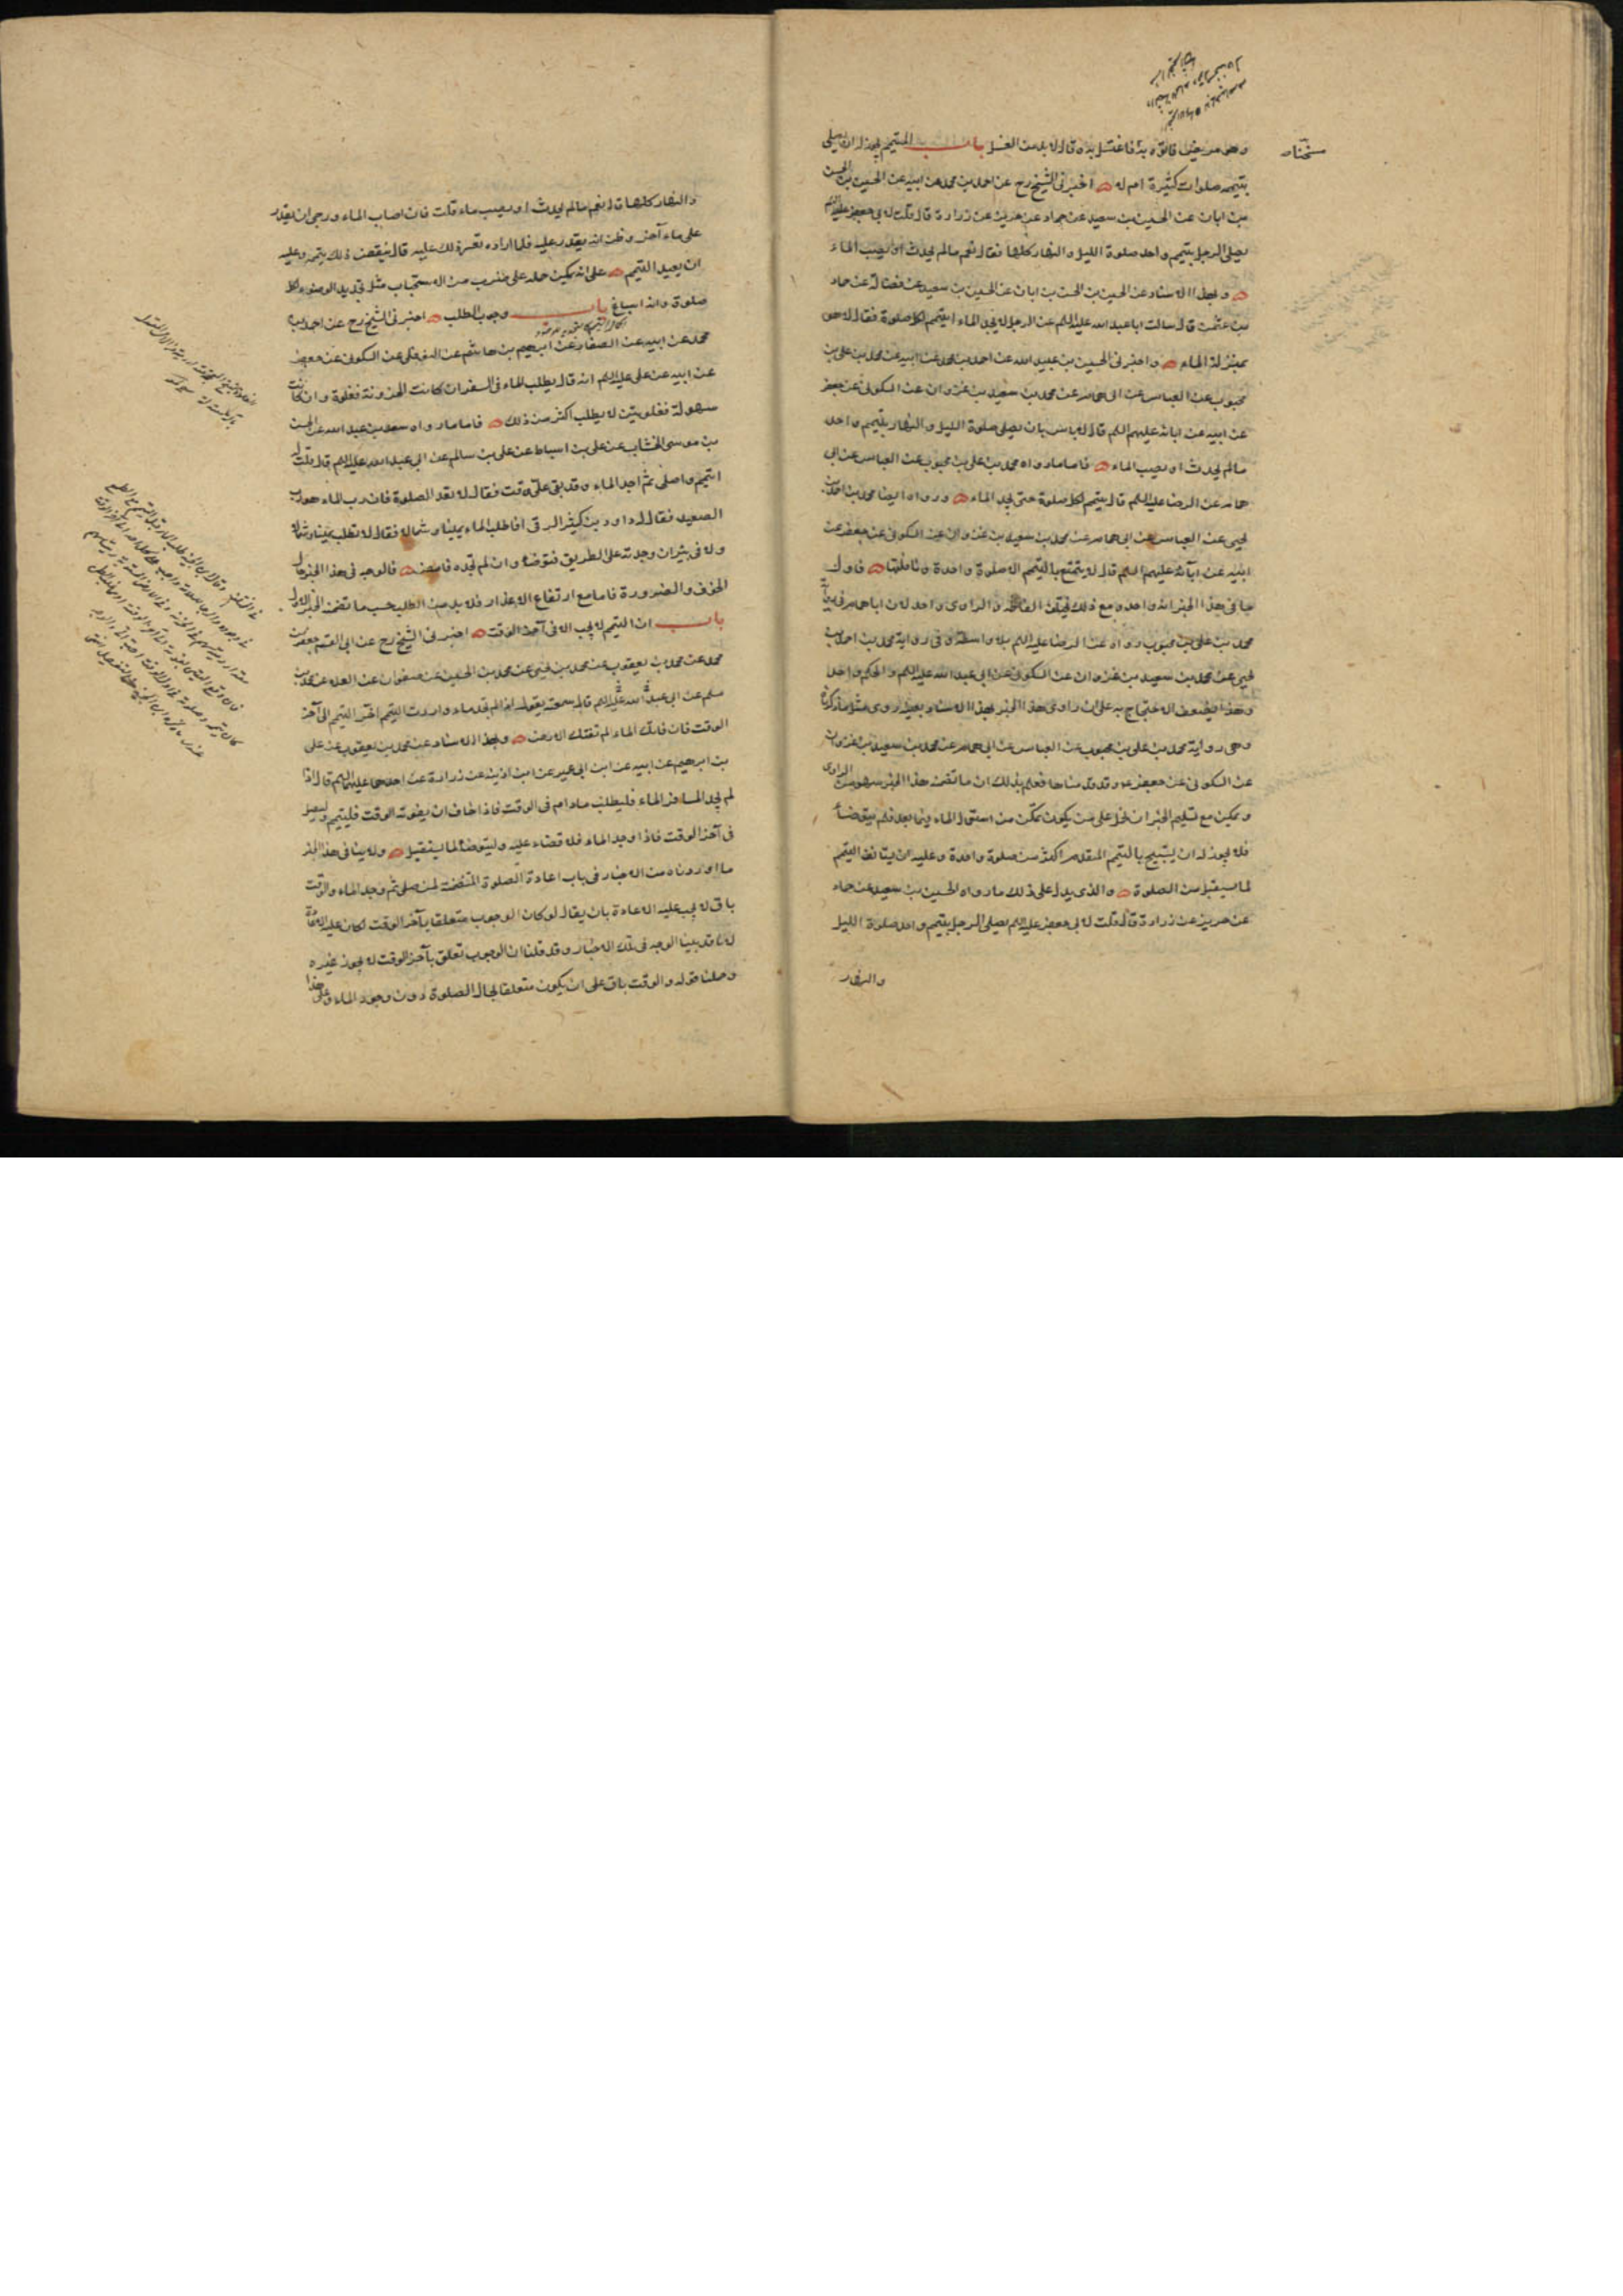 وهو مريض فاتوه به فاغتسل به وقال لا بد من الغسل باب المتيمم يجوز له ان يصلي
بتيممه صلوات كثيرة ام لا اخبرني الشيخ رح عن احمد بن محمد عن ابيه عن الحسين بن الحسن
بن ابان عن الحسين بن سعيد عن حماد عن حريز عن زرارة قال قلت لابي جعفر عليه السلم
يصلي الرجل بتيمم واحد صلوة الليل والنهار كلها فقال نعم مالم يحدث او يصيب الماء
وبهذا الاسناد عن الحسين بن الحسن بن ابان عن الحسين بن سعيد عن فضالة عن حماد
بن عثمن قال سالت ابا عبد الله عليه السلم عن الرجل لا يجد الماء ايتيمم لكل صلوة فقال لا هو
بمنزلة الماء واخبرني الحسين بن عبيد الله عن احمد بن محمد عن ابيه عن محمد بن علي بن
محبوب عن العباس عن ابي همام عن محمد بن سعيد بن غزوان عن السكوني عن جعفر
عن ابيه عن ابائه عليهم السلم قال لا باس بان يصلي صلوة الليل والنهار بتيمم واحد
مالم يحدث او يصيب الماء فاما ما رواه محمد بن علي بن محبوب عن العباس عن ابي
همام عن الرضا عليه السلم قال يتيمم لكل صلوة حتى يجد الماء ورواه ايضا محمد بن احمد بن
يحيى عن العباس عن ابي همام عن محمد بن سعيد بن غزوان عن السكوني عن جعفر عن
ابيه عن آبائه عليهم السلم قال لا يتمتع بالتيمم الا صلوة واحدة ونافلتها فاول
ما في هذا الخبر انه واحد ومع ذلك تختلف الفاظه والراوي واحد لان ابا همام في رواية
محمد بن علي بن محبوب رواه عن الرضا عليه السلم بلا واسطة وفي رواية محمد بن احمد بن
يحيى عن محمد بن سعيد بن غزوان عن السكوني عن ابي عبد الله عليه السلم والحكم واحد
وهذا يضعف الاحتجاج به على ان راوي هذا الخبر بهذا الاسناد بعينه روى مثل ما ذكرناه
وهي رواية محمد بن علي بن محبوب عن العباس عن ابي همام عن محمد بن سعيد بن غزوان
عن السكوني عن جعفر وقد قدمناها فعلم بذلك ان ما تضمن هذا الخبر سهو من الراوي
ويمكن مع تسليم الخبر ان نحمله على من يكون تمكن من استعمال الماء فيما بعد فلم يتوضأ
فلا يجوز له ان يستبيح بالتيمم المتقدم اكثر من صلوة واحدة وعليه ان يستانف التيمم
لما يستقبل من الصلوة والذي يدل على ذلك ما رواه الحسين بن سعيد عن حماد
عن حريز عن زرارة قال قلت لابي جعفر عليه السلم يصلي الرجل بتيمم واحد صلوة الليل
والنهار
والنهار كلها قال نعم مالم يحدث او يصيب ماء قلت فان اصاب الماء ورجى ان يقدر
على ماء آخر وظن انه يقدر عليه فلما اراده تعسر ذلك عليه قال ينقض ذلك تيممه وعليه
ان يعيد التيمم على انه يمكن حمله على ضرب من الاستحباب مثل تجديد الوضوء لكل
صلوة وانه اسباغ باب وجوب الطلب اخبرني الشيخ رح عن احمد بن
محمد عن ابيه عن الصفار عن ابرهيم بن هاشم عن النوفلي عن السكوني عن جعفر
عن ابيه عن علي عليه السلم انه قال يطلب الماء في السفر ان كانت الحزونة فغلوة وان كانت
سهولة فغلوتين لا يطلب اكثر من ذلك فاما ما رواه سعد بن عبد الله عن الحسن
بن موسى الخشاب عن علي بن اسباط عن علي بن سالم عن ابي عبد الله عليه السلم قال قلت له
اتيمم واصلي ثم اجد الماء وقد بقي علي وقت فقال لا تعد الصلوة فان رب الماء هو رب
الصعيد فقال له داود بن كثير الرقي افاطلب الماء يمينا وشمالا فقال لا تطلب يمينا وشمالا
ولا في بئر ان وجدته على الطريق فتوضأ وان لم تجده فامض فالوجه في هذا الخبر حال
الخوف والضرورة فاما مع ارتفاع الاعذار فلا بد من الطلب حسب ما تضمن الخبر الاول
باب ان التيمم لا يجب الا في آخر الوقت اخبرني الشيخ رح عن ابي القسم جعفر بن
محمد عن محمد بن يعقوب عن محمد بن يحيى عن محمد بن الحسين عن صفوان عن العلا عن محمد بن
مسلم عن ابي عبد الله عليه السلم قال سمعته يقول اذا لم تجد ماء واردت التيمم اخر التيمم الى آخر
الوقت فان فاتك الماء لم تفتك الارض وبهذا الاسناد عن محمد بن يعقوب عن علي
بن ابرهيم عن ابيه عن ابن ابي عمير عن ابن اذينة عن زرارة عن احدهما عليهما السلم قال اذا
لم يجد المسافر الماء فليطلب مادام في الوقت فاذا خاف ان يفوته الوقت فليتيمم وليصل
في آخر الوقت فاذا وجد الماء فلا قضاء عليه وليتوضأ لما يستقبل ولا ينافي هذا الخبر
ما اوردناه من الاخبار في باب اعادة الصلوة المتضمنة لمن صلى ثم وجد الماء والوقت
باق لا يجب عليه الاعادة بان يقال لو كان الوجوب متعلقا بآخر الوقت لكان عليه الاعادة
لانا قد بينا الوجه في تلك الاخبار وقد قلنا ان الوجوب تعلق بآخر الوقت لا يجوز غيره
وحملنا قوله والوقت باق على ان يكون متعلقا بحال الصلوة دون وجود الماء وعلى هذا